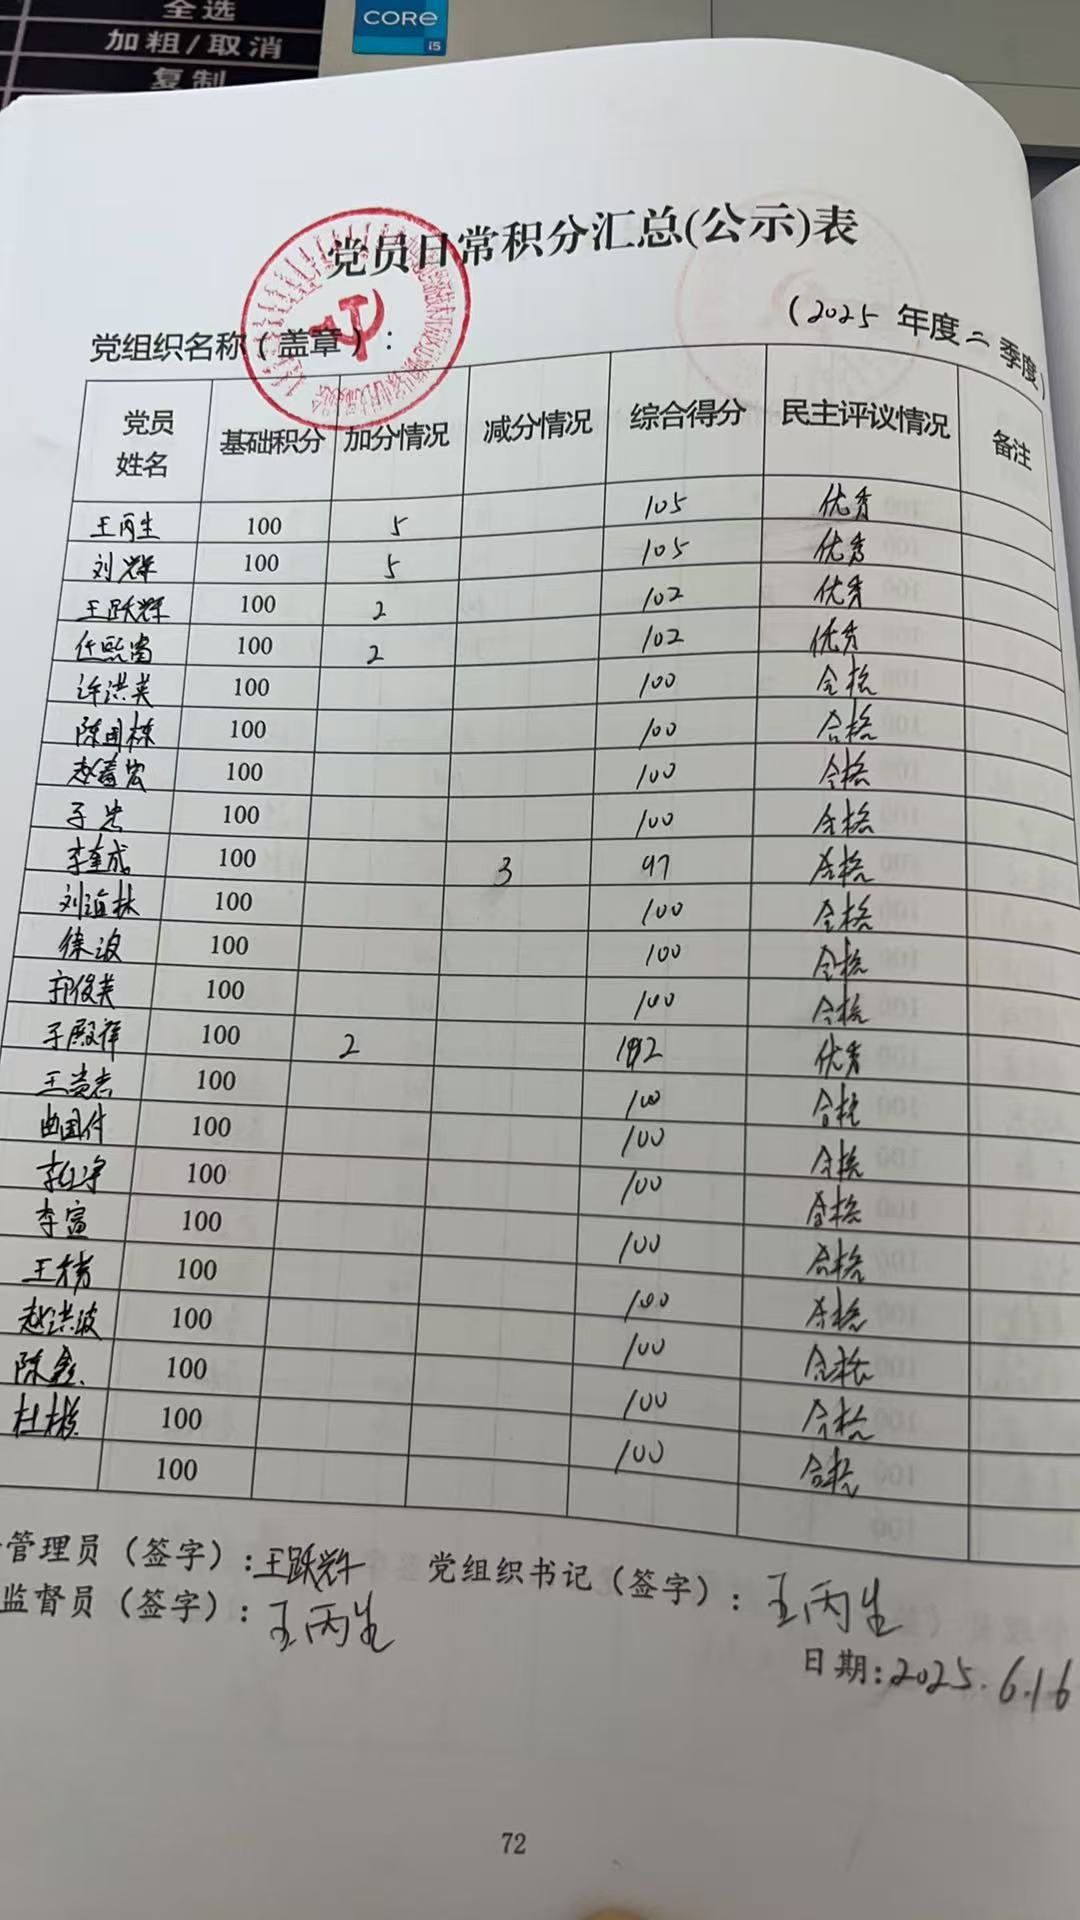 全选
加粗/取消
复制
CORe
i5
党员日常积分汇总(公示)表
(2025 年度二季度)
党组织名称(盖章):
党员姓名 基础积分 加分情况 减分情况 综合得分 民主评议情况 备注
王丙生 100 5 105 优秀
刘辉 100 5 105 优秀
王跃辉 100 2 102 优秀
任熙富 100 2 102 优秀
许洪英 100 100 合格
陈国栋 100 100 合格
赵喜宏 100 100 合格
于忠 100 100 合格
李奎成 100 3 97 合格
刘洹林 100 100 合格
徐波 100 100 合格
郭俊英 100 100 合格
于殿祥 100 2 102 优秀
王尚志 100 100 合格
曲国付 100 100 合格
李红净 100 100 合格
李富 100 100 合格
王楠 100 100 合格
赵洪波 100 100 合格
陈鑫 100 100 合格
杜 100 100 合格
100
管理员(签字):王跃辉 党组织书记(签字):王丙生
监督员(签字):王丙生
日期:2025.6.16
72